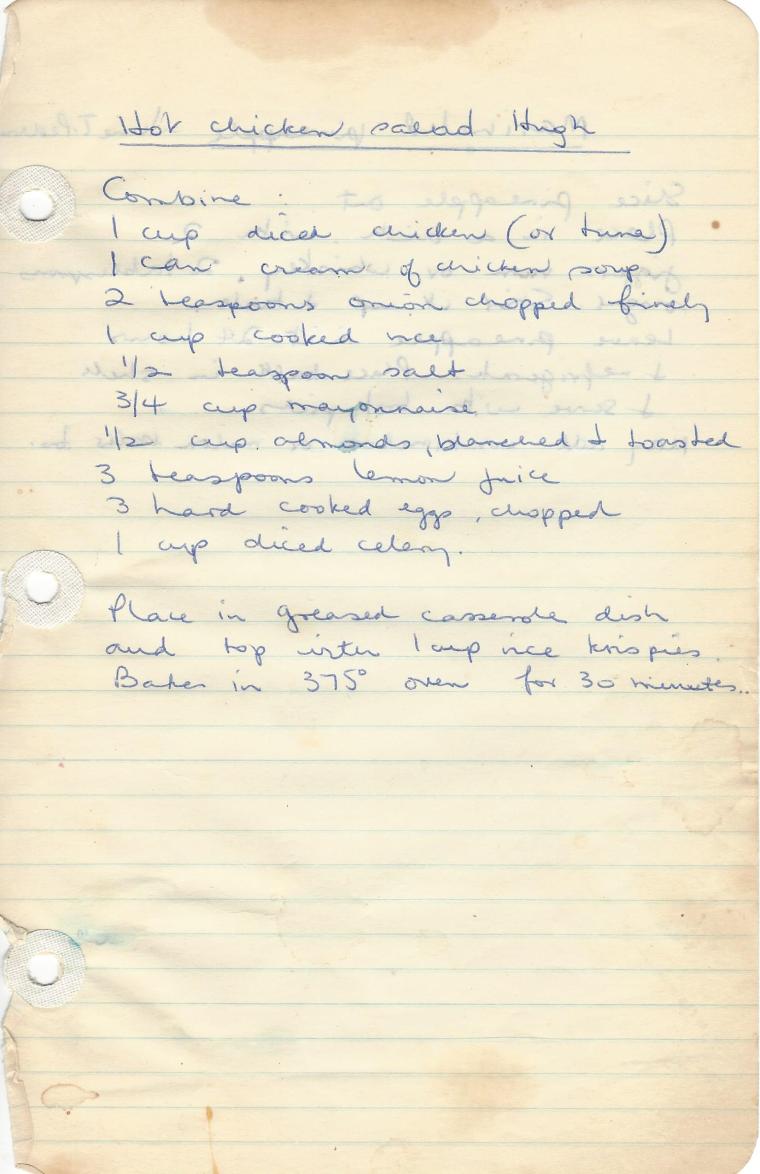 Hot chicken salad Hugh
Combine :
1 cup diced chicken (or tuna)
1 can cream of chicken soup
2 teaspoons onion chopped finely
1 cup cooked rice
1/2 teaspoon salt
3/4 cup mayonnaise
1/2 cup. almonds, blanched + toasted
3 teaspoons lemon juice
3 hard cooked eggs, chopped
1 cup diced celery.
Place in greased casserole dish
and top with 1 cup rice krispies.
Bake in 375° oven for 30 minutes..